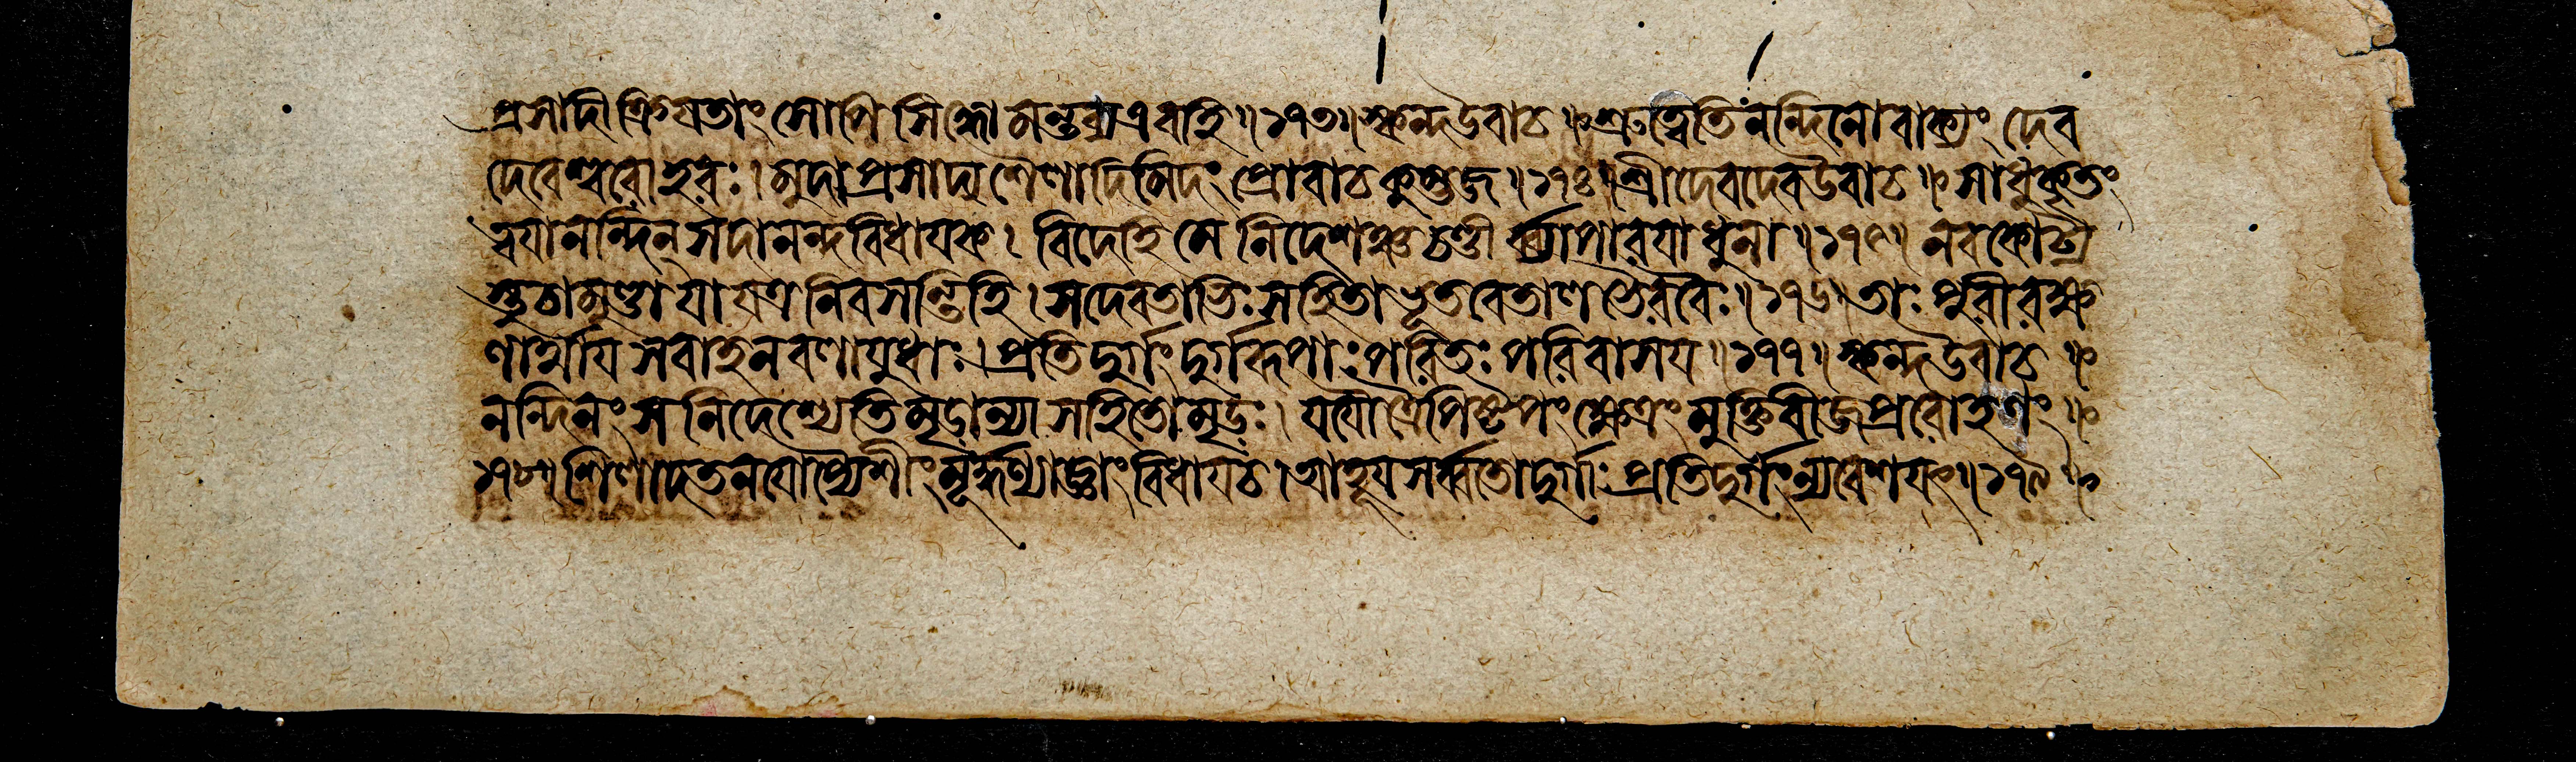 প্রসাদীক্রিযতাং সোপি সিংহো মন্তব্য এবহি॥১৭৩॥স্কন্দ উবাচ॥শ্রুত্বেতি নন্দিনো বাক্যং দেব
দেবেশ্বরো হরঃ।মুদা প্রসাদ্য শৈলাদিমিদং প্রোবাচ কুম্ভজ॥১৭৪॥শ্রীদেবদেব উবাচ॥সাধুকৃতং
ত্বযানন্দিন্ সদানন্দবিধাযক। বিধেহি মে নিদেশঞ্চ চণ্ডীর্ব্যাপারযাধুনা॥১৭৫॥নবকোট্য
স্তু চামুণ্ডা যা যত্র নিবসন্তি হি।সদেবতাভিঃ সহিতা ভূতবেতালভৈরবৈঃ॥১৭৬॥তাঃ পুরীরক্ষ
ণার্থায সবাহনবলাযুধাঃ।প্রতিদুর্গং দুর্গরূপাঃ পরিতঃ পরিবাসয॥১৭৭॥স্কন্দ উবাচ॥
নন্দিনং সনিদেশ্যেতি মৃডান্যা সহিতো মৃডঃ। যযৌ ত্রৈপিষ্টপং ক্ষেত্রং মুক্তিবীজপ্ররোহণং॥
১৭৮॥শিলাদতনযোপ্যৈশীং মূর্দ্ধ্ন্যাজ্ঞাং বিধায চ।আহূয সর্ব্বতো দুর্গাঃ প্রতিদুর্গং ন্যবেশযৎ॥১৭৯॥